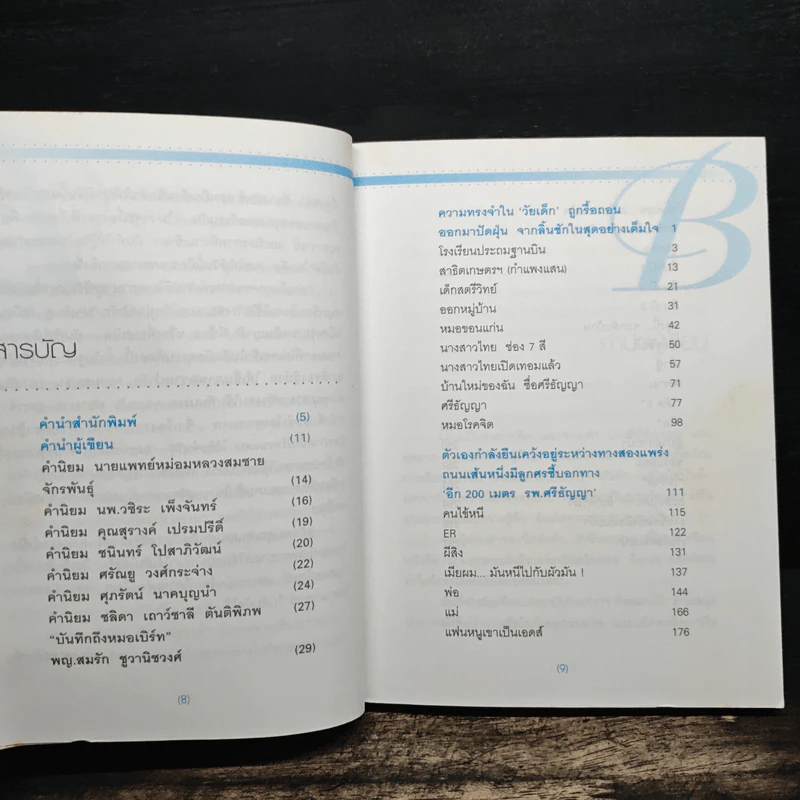 สารบัญ
คำนำสำนักพิมพ์ (5)
คำนำผู้เขียน (11)
คำนิยม นายแพทย์หม่อมหลวงสมชาย
จักรพันธุ์ (14)
คำนิยม นพ.วชิระ เพ็งจันทร์ (16)
คำนิยม คุณสุรางค์ เปรมปรีดิ์ (19)
คำนิยม ชนินทร์ โปสาภิวัฒน์ (20)
คำนิยม ศรัณยู วงศ์กระจ่าง (22)
คำนิยม ศุภรัตน์ นาคบุญนำ (24)
คำนิยม ชลิดา เถาว์ชาลี ตันติพิภพ (27)
"บันทึกถึงหมอเบิร์ท"
พญ.สมรัก ชูวานิชวงศ์ (29)
(8)
B
ความทรงจำใน 'วัยเด็ก' ถูกรื้อถอน
ออกมาปัดฝุ่น จากลิ้นชักในสุดอย่างเต็มใจ 1
โรงเรียนประถมฐานบิน 3
สาธิตเกษตรฯ (กำแพงแสน) 13
เด็กสตรีวิทย์ 21
ออกหมู่บ้าน 31
หมอขอนแก่น 42
นางสาวไทย ช่อง 7 สี 50
นางสาวไทยเปิดเทอมแล้ว 57
บ้านใหม่ของฉัน ชื่อศรีธัญญา 71
ศรีธัญญา 77
หมอโรคจิต 98
ตัวเองกำลังยืนเคว้งอยู่ระหว่างทางสองแพร่ง
ถนนเส้นหนึ่งมีลูกศรชี้บอกทาง
'อีก 200 เมตร รพ.ศรีธัญญา' 111
คนไข้หนี 115
ER 122
ผีสิง 131
เมียผม... มันหนีไปกับผัวมัน ! 137
พ่อ 144
แม่ 166
แฟนหนูเขาเป็นเอดส์ 176
(9)